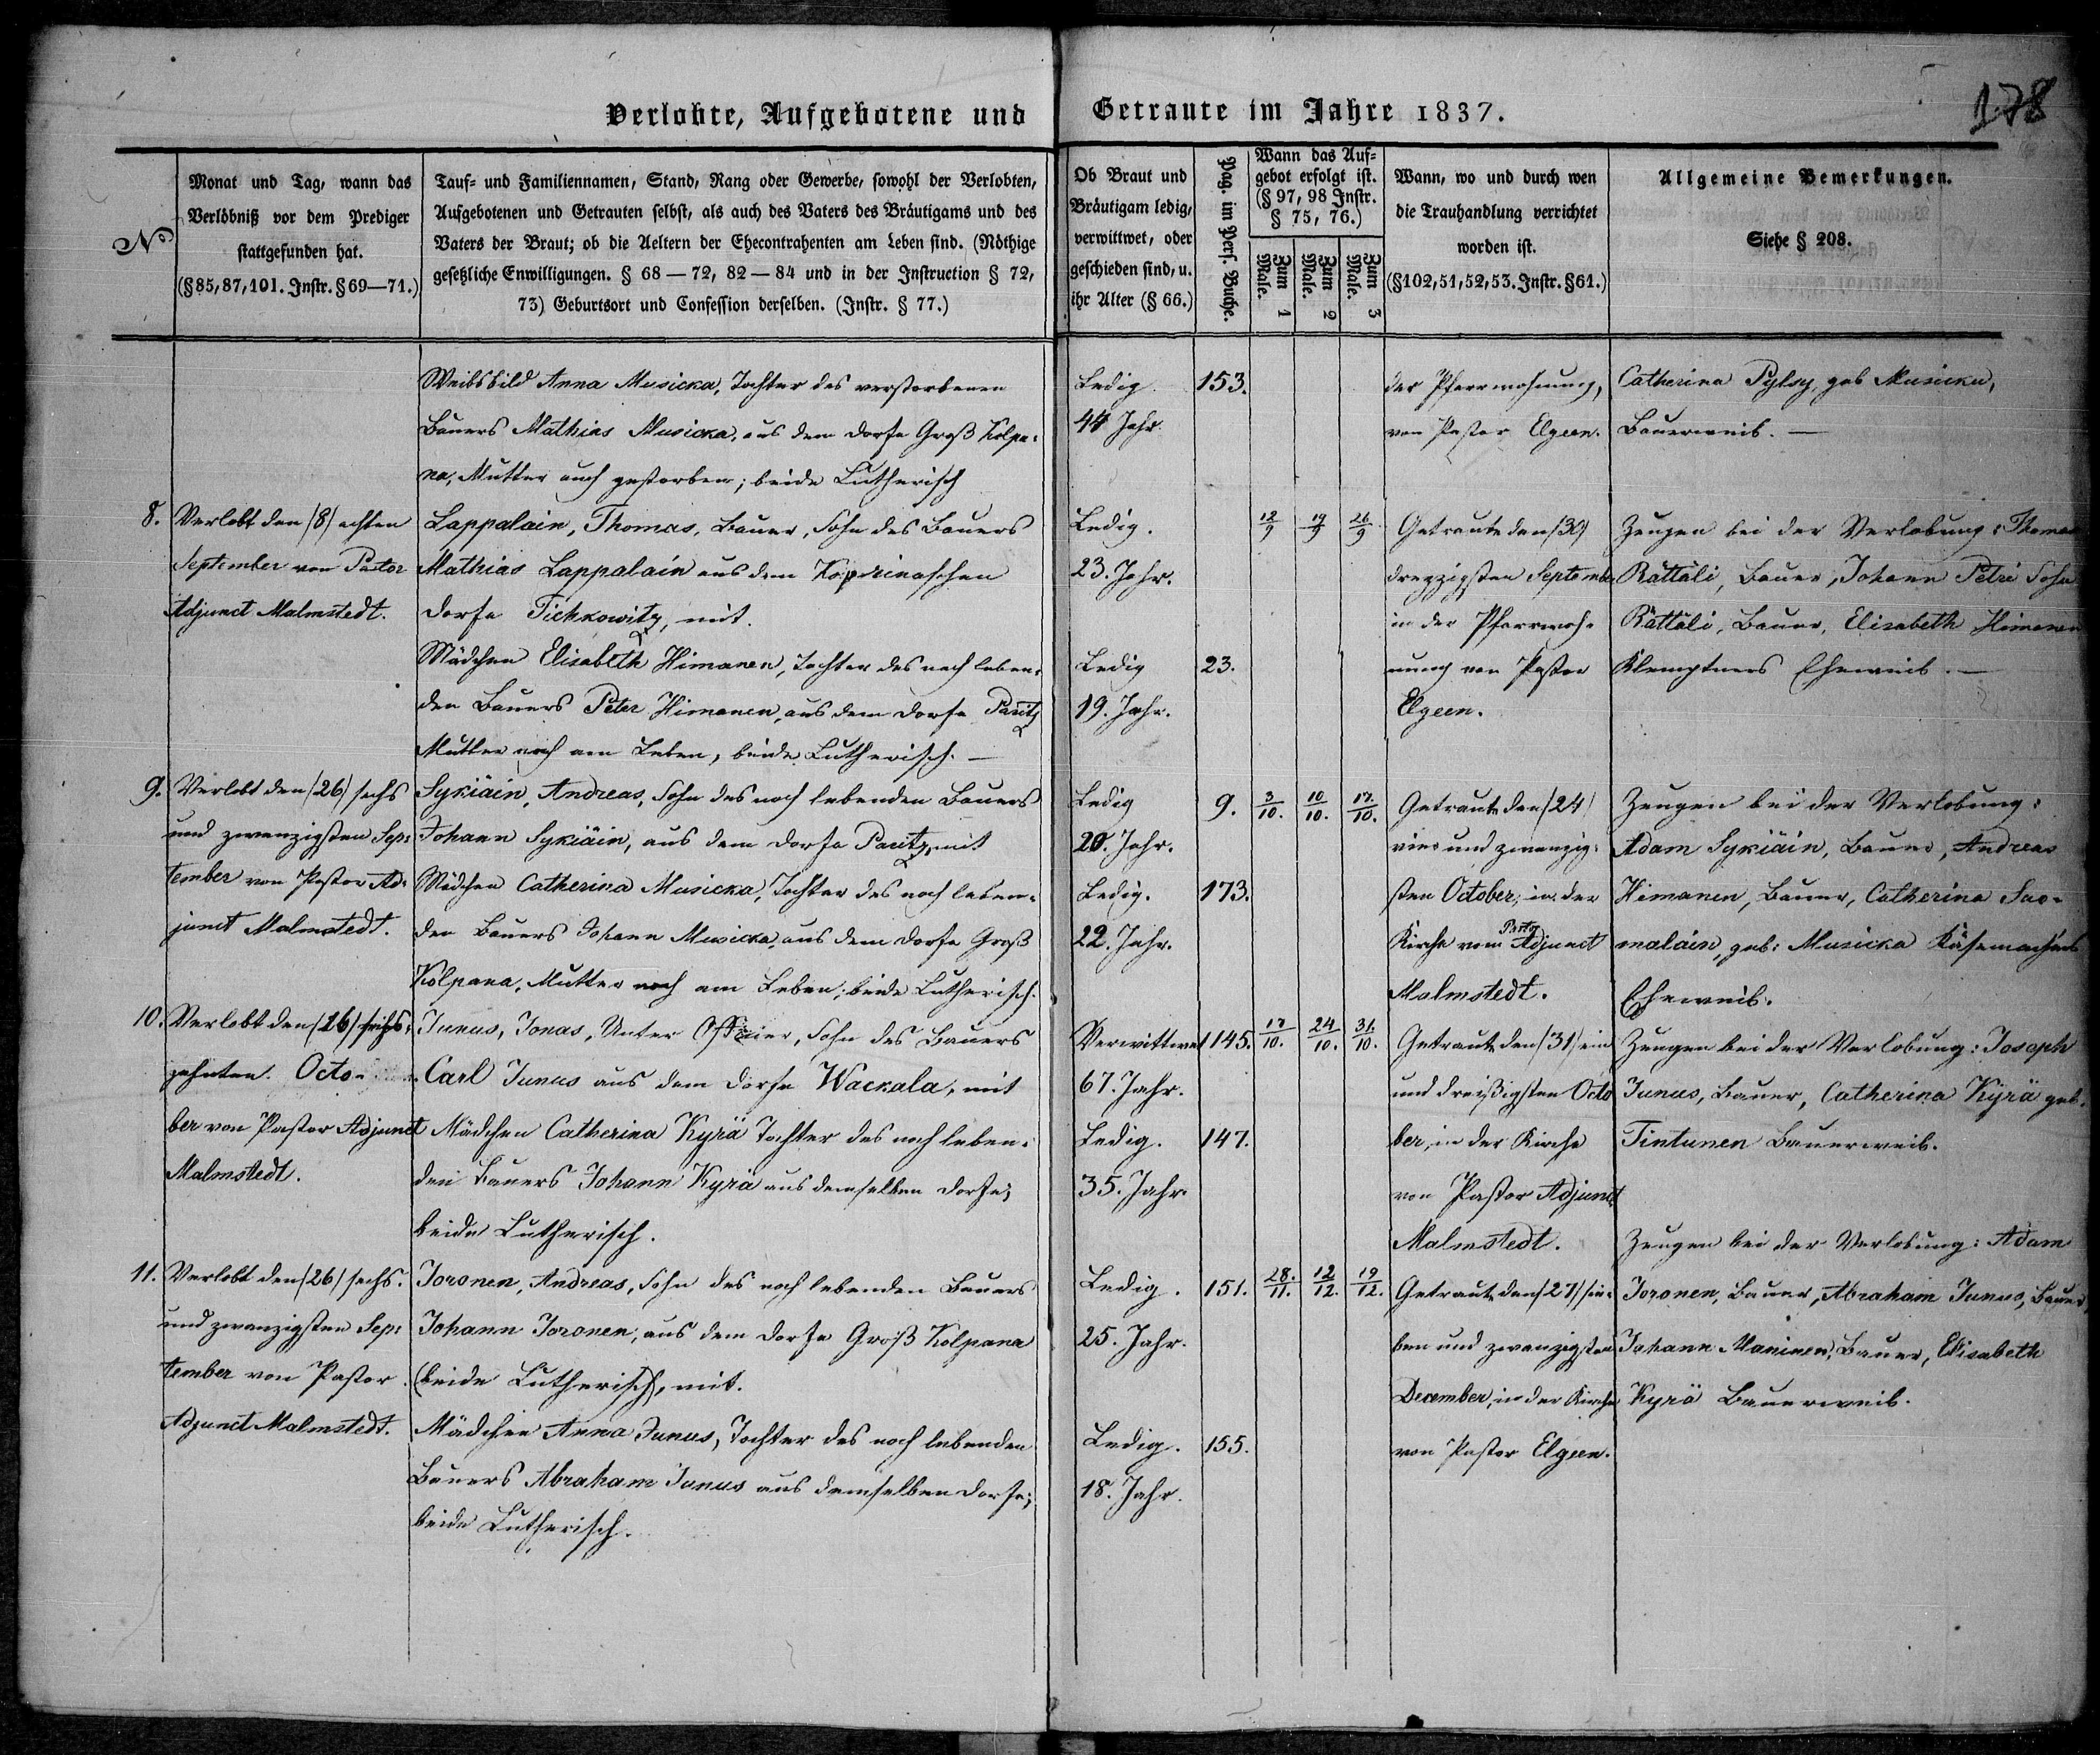 178
Verlobte, Aufgebotene und Getraute im Jahre 1837.
No
Monat und Tag, wann das
Verlöbniß vor dem Prediger
stattgefunden hat.
(§85,87,101. Instr. §69—71.)
Tauf= und Familiennamen, Stand, Rang oder Gewerbe, sowohl der Verlobten,
Aufgebotenen und Getrauten selbst, als auch des Vaters des Bräutigams und des
Vaters der Braut; ob die Aeltern der Ehecontrahenten am Leben sind. (Nöthige
gesetzliche Enwilligungen. § 68 — 72, 82 — 84 und in der Instruction § 72,
73) Geburtsort und Confession derselben. (Instr. § 77.)
Ob Braut und
Bräutigam ledig,
verwittwet, oder
geschieden sind, u.
ihr Alter (§ 66.)
Pag. im Pers. Buche.
Wann das Auf=
gebot erfolgt ist.
(§ 97, 98 Instr.
§ 75, 76.)
Zum 1 Male.
Zum 2 Male.
Zum 3 Male.
Wann, wo und durch wen
die Trauhandlung verrichtet
worden ist.
(§102,51,52,53. Instr. §61.)
Allgemeine Bemerkungen.
Siehe § 208.
Weibsbild Anna Musicka, Tochter des verstorbenen
Bauers Mathias Musicka, aus dem Dorfe Groß Kolpa=
na, Mutter auch gestorben; beide Lutherisch
Ledig. 153.
44 Jahr
der Pfarrwohnung,
von Pastor Elgeen.
Catherina Pylsy, geb Musicka,
Bauerweib. —
8. Verlobt den /8/ achten
September von Pastor
Adjunct Malmstedt.
Lappalain, Thomas, Bauer, Sohn des Bauers
Mathias Lappalain aus dem Koprinaschen
Dorfe Tichkowitz, mit.
Mädchen Elisabeth Himanen, Tochter des noch leben=
den Bauers Peter Himanen, aus dem Dorfe Paritz
Mutter noch am Leben, beide Lutherisch. —
Ledig. 12/9 19/9 26/9
23. Jahr.
Ledig 23.
19. Jahr.
Getraut den /30/
dreyzigsten September
in der Pfarrwoh=
nung von Pastor
Elgeen.
Zeugen bei der Verlobung: Thomas
Rättäli, Bauer, Johann Petri Sohn
Rättäli, Bauer, Elisabeth Himanen
Klemptners Eheweib. —
9. Verlobt den /26/ sechs
und zwanzigsten Sep=
tember von Pastor Ad=
junct Malmstedt.
Sykiäin, Andreas, Sohn des noch lebenden Bauers
Johann Sykiäin, aus dem Dorfe Paritz, mit
Mädchen Catherina Musicka, Tochter des noch leben=
den Bauers Johann Musicka, aus dem Dorfe Groß
Kolpana, Mutter noch am Leben; beide Lutherisch.
Ledig 9. 3/10. 10/10. 17/10.
20. Jahr.
Ledig. 173.
22. Jahr.
Getraut den /24/
vier und zwanzig=
sten October, in der
Kirche vom Pastor Adjunct
Malmstedt.
Zeugen bei der Verlobung:
Adam Sykiäin, Bauer, Andreas
Himanen, Bauer, Catherina Suo=
malain, geb: Musicka Käsemachers
Eheweib.
10. Verlobt den /16/ sechs=
zehnten Octo=
ber von Pastor Adjunct
Malmstedt.
Junus, Jonas, Unter Officier, Sohn des Bauers
Carl Junus aus dem Dorfe Wackala, mit
Mädchen Catherina Kyrä Tochter des noch leben=
den Bauers Johann Kyrä aus demselben Dorfe;
beide Lutherisch.
Verwittwet 145. 17/10. 24/10. 31/10.
67. Jahr.
Ledig. 147.
35. Jahr.
Getraut den /31/ ein
und dreißigsten Octo
ber, in der Kirche
von Pastor Adjunct
Malmstedt.
Zeugen bei der Verlobung: Joseph
Junus, Bauer, Catherina Kyrä geb.
Tintunen Bauerweib.
11. Verlobt den /26/ sechs=
und zwanzigsten Sep=
tember von Pastor
Adjunct Malmstedt.
Joronen, Andreas, Sohn des noch lebenden Bauers
Johann Joronen, aus dem Dorfe Groß Kolpana
(beide Lutherisch), mit.
Mädchen Anna Junus, Tochter des noch lebenden
Bauers Abraham Junus aus demselben Dorfe;
beide Lutherisch.
Ledig. 151. 28./11. 12/12. 19/12.
25. Jahr.
Ledig. 155.
18. Jahr.
Getraut den /27/ sie=
ben und zwanzigsten
December, in der Kirche
von Pastor Elgeen.
Zeugen bei der Verlobung: Adam
Joronen, Bauer, Abraham Junus, Bauer
Johann Maninen, Bauer, Elisabeth
Kyrä Bauerweib.